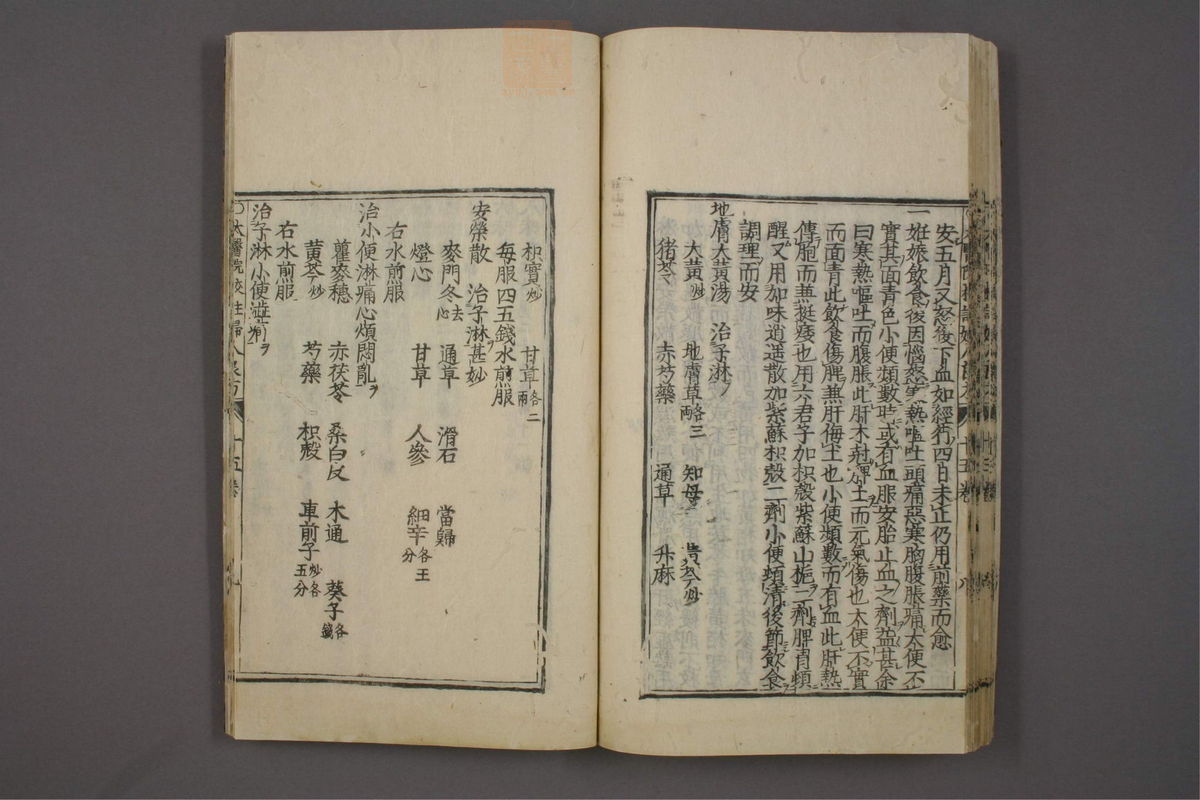 安五月又怒後下血如經行四日未止仍用前藥而愈
一妊娠飲食後因惱怒寒熱嘔吐頭痛惡寒胸腹脹痛大便不
實其面青色小便頻數時或有血服安胎止血之劑益甚余
曰寒熱嘔吐而腹脹此肝木剋脾土而元氣傷也大便不實
而面青此飲食傷脾兼肝侮土也小便頻數而有血此肝熱
傳胞而兼挺痿也用六君子加枳殼紫蘇山梔二劑脾胃頓
醒又用加味逍遥散加紫蘇枳殼二劑小便頓清後節飲食
調理而安
地膚大黄湯 治子淋
大黄炒 地膚草各三兩 知母 黄芩炒
猪苓 赤芍藥 通草 升麻
枳實炒 甘草各二兩
每服四五錢水煎服
安榮散 治子淋甚妙
麥門冬去心 通草 滑石 當歸
燈心 甘草 人參 細辛各五分
右水煎服
治小便淋痛心煩悶亂ヲ
瞿麥穗 赤茯苓 桑白皮 木通 葵子各一錢
黄芩炒 芍藥 枳殼 車前子炒各五分
右水煎服
治子淋小便澁痛ヲ
○太醫院校註婦人良方 十五卷